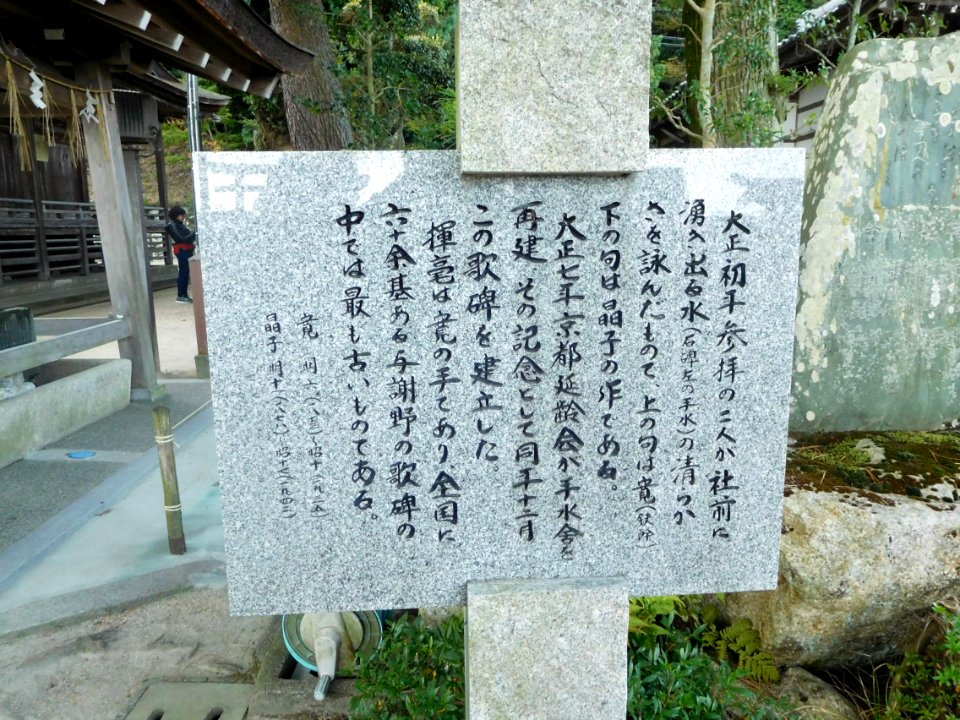 大正初年参拝の二人が社前に
湧き出る水(石碑左の手水)の清らか
さを詠んだもので、上の句は寛(鉄幹)
下の句は晶子の作である。
大正七年京都延齢会が手水舎を
再建 その記念として同年十二月
この歌碑を建立した。
揮毫は寛の手であり、全国に
六十余基ある与謝野の歌碑の
中では最も古いものである。
寛 明六(一八七三)〜昭十(一九三五)
晶子 明十一(一八七八)〜昭十七(一九四二)